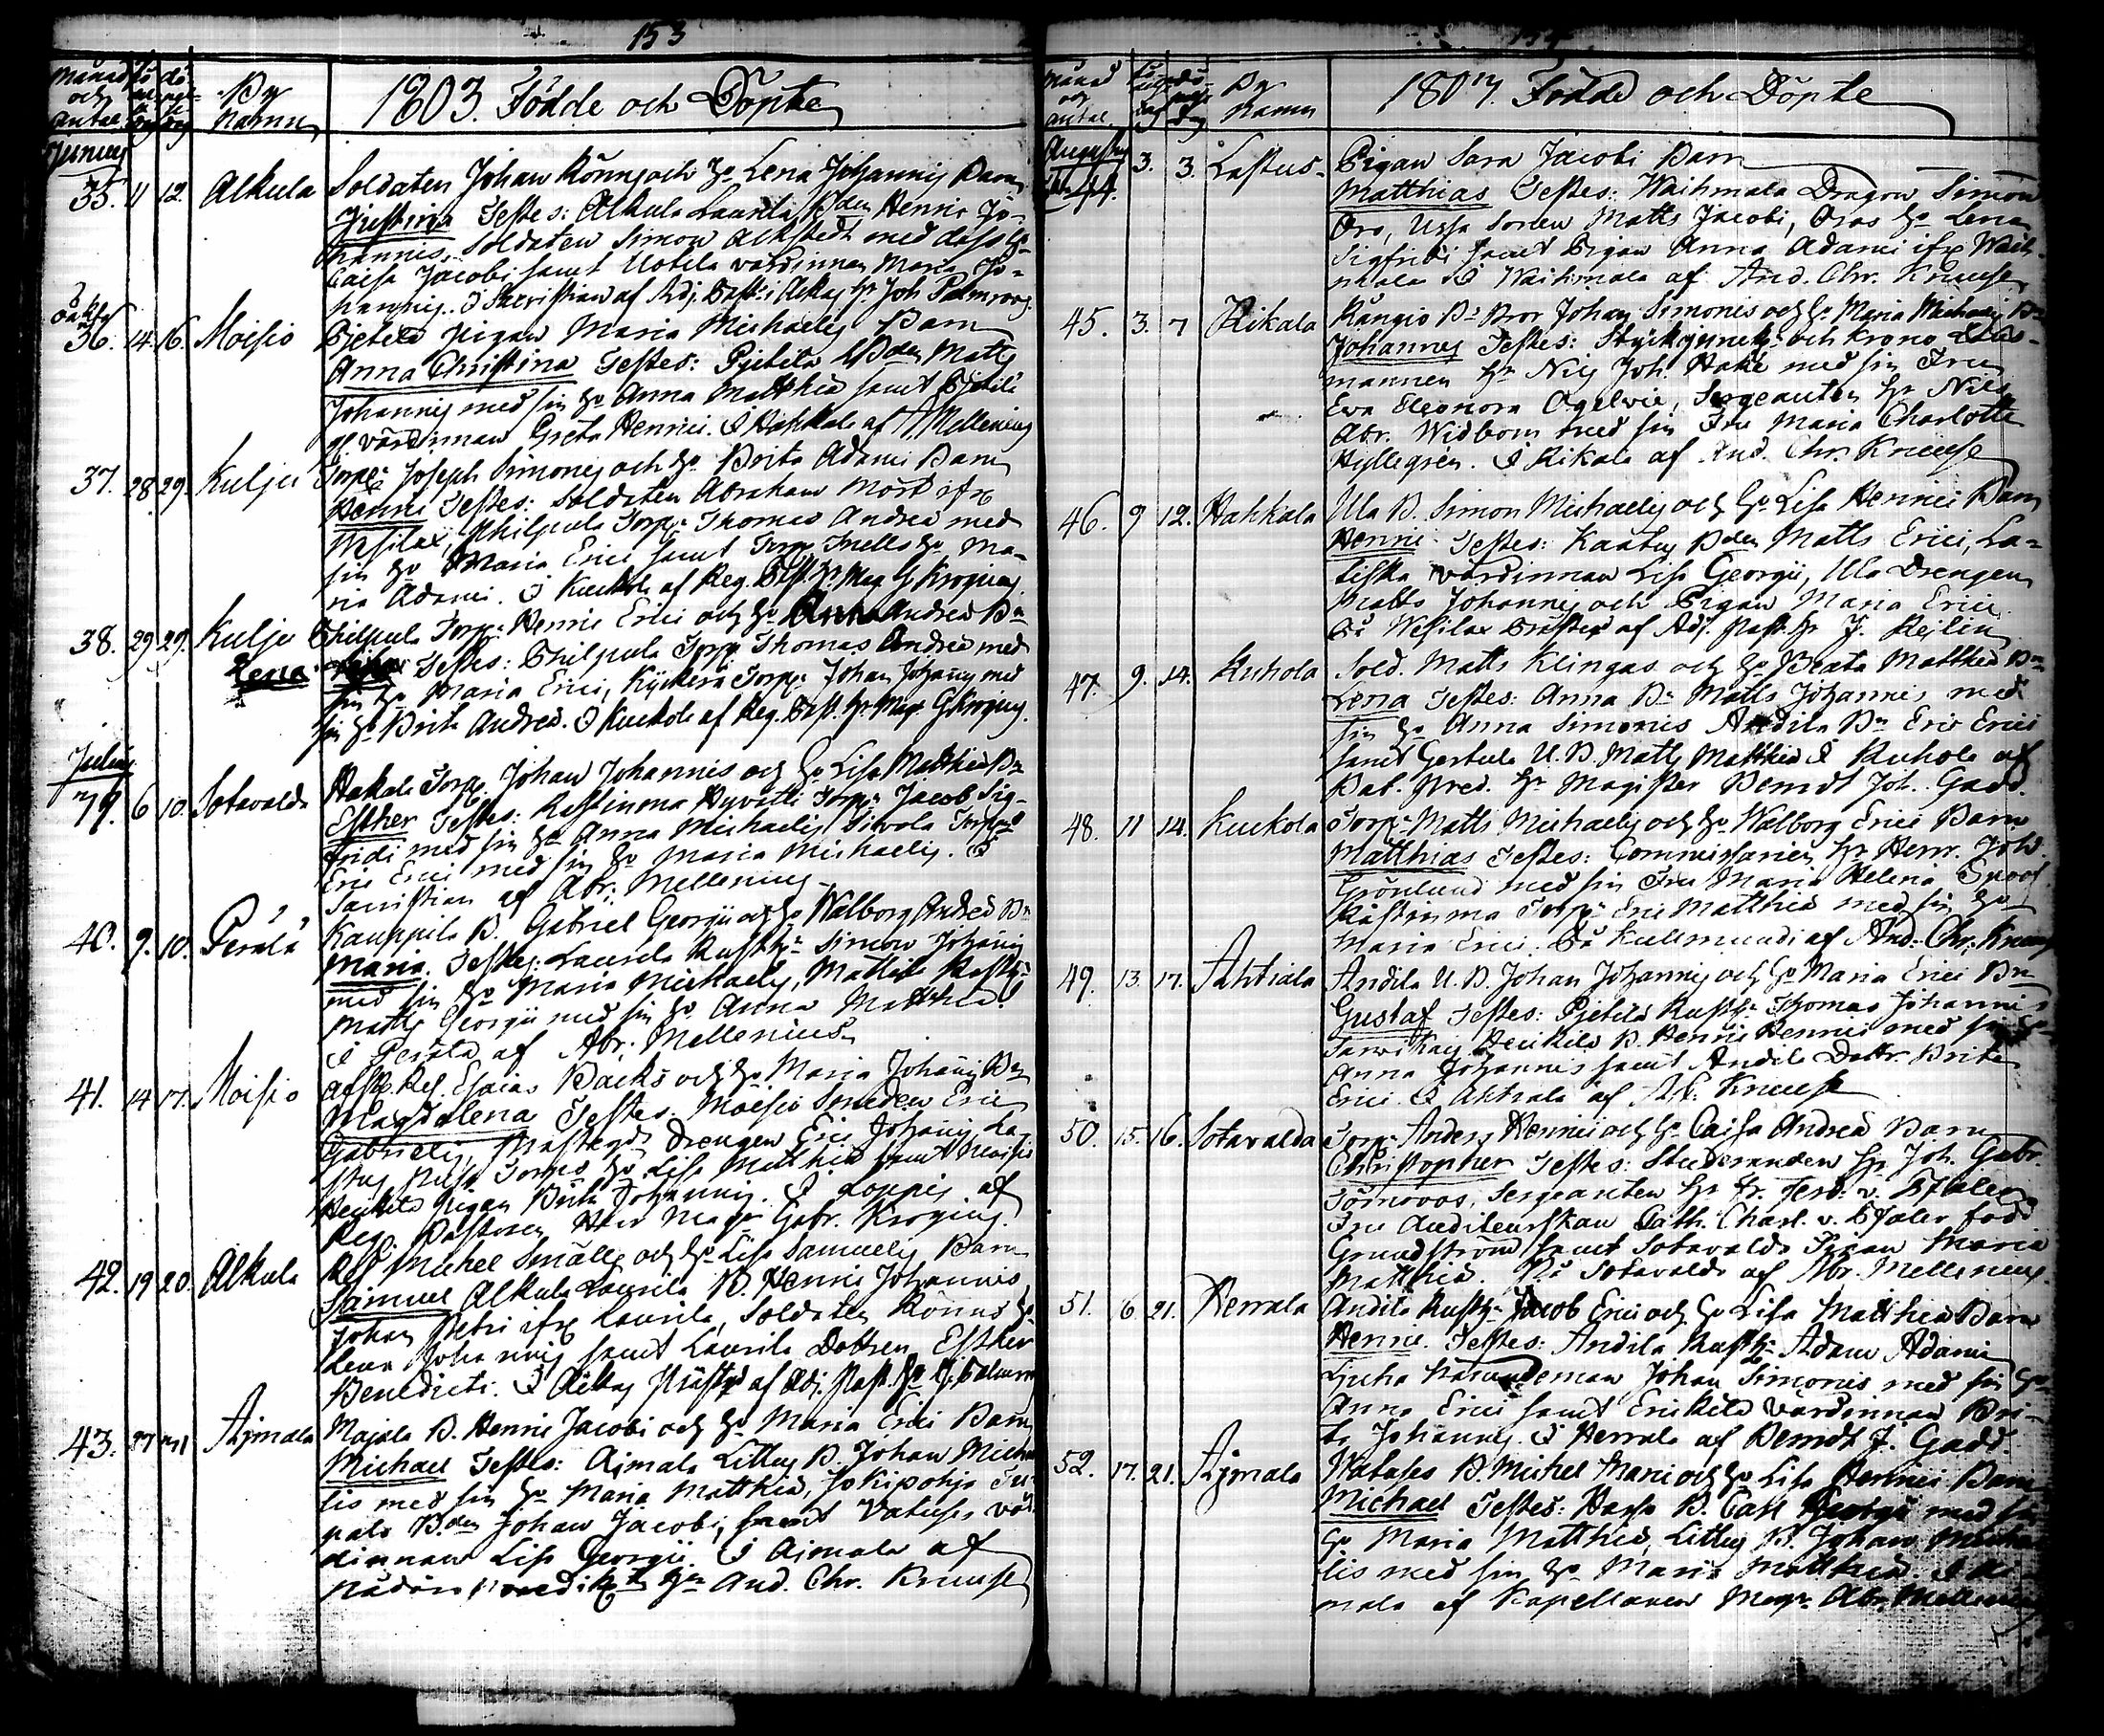 153
Månad och antal
By Namn
1803. Födde och Döpte
Junius
35. 11 12. Alkula Soldaten Johan Rönn och H. Lena Johannis Barn
Justina Testes: Alkula Laurila Bden Henric Jo-
hannis, Soldaten Simon Alkstedt med dess H.
Caisa Jacobi samt Uotila värdinnan Maria Jo-
hannis. I Sacristian af Adj. Past. i Akas Hr Joh Palmroos.
oäkta
36. 14. 16. Moisio Pjetilä pigan Maria Michaelis Barn
Anna Christina Testes: Pjetilä Bden Matts
Johannis med sin H. Anna Matthiæ samt Pjetilä
gl värdinnan Greta Henrici. I Hahkala af A Mellenius
37. 28. 29. Kulju Torp. Joseph Simonis och H. Brita Adami Barn
Henric Testes: Soldaten Abraham Mört ifr.
Wesilax, Philpula Torp. Thomas Andreæ med
sin H. Maria Erici samt Torp. Snells H. Ma-
ria Adami. I Kuckola af Reg. Past. Hr Mag G Krogius
38. 29 29. Kulju Philpula Torp. Henric Erici och H. Anna Andreæ Bn
Lena Testes: Philpula Torp. Thomas Andreæ med
sin H. Maria Erici, Kyckera Torp. Johan Johannis med
sin H. Brita Andreæ. I Kuckola af Reg. Past. Hr Mag G Krogius.
Julius
79. 6 10. Sotavalda Hakala Torp. Johan Johannis och H. Lisa Matthiæ Bn
Esther Testes: Rastinma Hyvätti Torp. Jacob Sig-
fridi med sin H. Anna Michaelis, Sivola Torp.
Eric Erici med sin H. Maria Michaelis. I
Sacristian af Abr. Mellenius
40. 9. 10. Perälä Kauppila B. Gabriel Georgii och H. Walborg Andreæ Bn
Maria. Testes: Laurila Rusth. Simon Johannis
med sin H. Maria Michaelis, Mattila Rusth.
Matts Georgii med sin H. Anna Matthiæ.
I Perälä af Abr. Mellenius
41. 14 17. Moisio afsk. Ref. Esaias Backs och H. Maria Johannis Bn
Magdalena Testes. Moisio Smeden Eric
Gabrielis, Prästegds Drengen Eric Johannis La-
stus Torp. H. Lisa Matthiæ samt Moisio
Heickilä pigan Brita Johannis. I Loppis af
Reg. Pastoren Herr Mag. Gabr. Krogius.
42. 19 20. Alkula Ref Michel Smäll och H. Lisa Samuelis Barn
Samuel Alkula Laurila B. Henric Johannis
Johan Petri ifr Laurila, Soldaten Rönns H.
Lena Johannis samt Laurila Dottren Esther
Benedicti. I Ackas Prästgd af Adj. Past. Hr J. Palmroos
43. Ajmala Majala B. Henric Jacobi och H. Maria Erici Barn
Michael Testes: Ajmala Littus B. Johan Micha-
lis med sin H. Maria Matthiæ, Jokipohja Tu-
pala Bden Johan Jacobi, samt Vatuses vär-
dinnan Lisa Georgii. I Ajmala af
Nådårs predik. Hr And. Chr. Kruuse
Månad och antal
By Namn
1803. Födde och Döpte
Augusty
44. 3. 3. Lastus Pigan Sara Jacobi Barn
Matthias Testes: Waihmala Dragon Simon
Oro, Ussa Sonen Matts Jacobi, Oros H. Lena
Sigfridi samt Pigan Anna Adami ifr Waih-
mala. I Waihmala af And. Chr. Kruuse
45. 3. 7 Kikala Rångio B. Bror Johan Simonis och H. Maria Michaelis Bn
Johannes Testes: Styckjunk. och Krono Läns-
mannen Hr Nils Joh. Hake med sin Fru
Eva Eleonora Ogelvie, Sergeanten Hr Nils
Abr. Widbom med sin Fru Maria Charlotte
Hyllegren. I Kikala af And. Chr. Kruuse
46. 9 12. Hahkala Ula B. Simon Michaelis och H. Lisa Henrici Barn
Henric. Testes: Kaatus Bden Matts Erici, La-
tiska värdinnan Lisa Georgii, Ula Drengen
Matts Johannis och Pigan Maria Erici.
På Wesilax Prästgd af Adj. Past. Hr J. Kejlin
47. 9. 14. Kuhola Sold. Matts Klingas och H. Beata Matthiæ Bn
Lena Testes: Anna B. Matts Johannis med
sin H. Anna Simonis Andila Bn Eric Erici
samt Gertula U. B. Matts Matthiæ I Kuhola af
Bat. Pred. Hr Magister Berndt Joh. Gadd.
48. 11 14. Kuckola Torp. Matts Michaelis och H. Walborg Erici Barn
Matthias Testes: Commissarien Hr Henr. Joh.
Grönlund med sin Fru Maria Helena Spoof.
Rastinma Torp. Eric Matthiæ med sin H.
Maria Erici. På Kullmundi af And. Chr. Kruuse
49. 13. 17. Ahtiala Andila U. B. Johan Johannis och H. Maria Erici Bn
Gustaf Testes: Pjetilä Rusth. Thomas Johannis
Heickilä B. Henric Henrici med sin H.
Anna Johannis samt Andila Dottr. Brita
Erici. I Ahtiala af Kruuse
50. 15. 16. Sotavalda Torp. Anders Henrici och H. Caisa Andreæ Barn
Christopher Testes: Studeranden Hr Joh. Gabr.
Törnroos, Sergeanten Hr Fr. Ferd. v. Pfaler
Fru Auditeurskan Cath. Charl. v. Pfaler född
Grundström samt Sotavalda Pigan Maria
Matthiæ. På Sotavalda af Abr. Mellenius.
51. 6. 21. Herrala Andila Rusth. Jacob Erici och H. Lisa Matthiæ Barn
Henric. Testes: Andila Rusth. Adam Adami
Ljuha Nämndeman Johan Simonis med sin H.
Anna Erici samt Erickilä värdinnan Bri-
ta Johannis. I Herrala af Berndt J. Gadd.
52. 17. 21. Ajmala Watuses B. Michel Marci och H. Lisa Henrici Barn
Michael Testes: Hassa B. Carl Georgii med sin
H. Maria Matthiæ, Littus B. Johan Micha-
lis med sin H. Maria Matthiæ I Aj-
mala af Kapellanen Mag. Abr. Mellenius